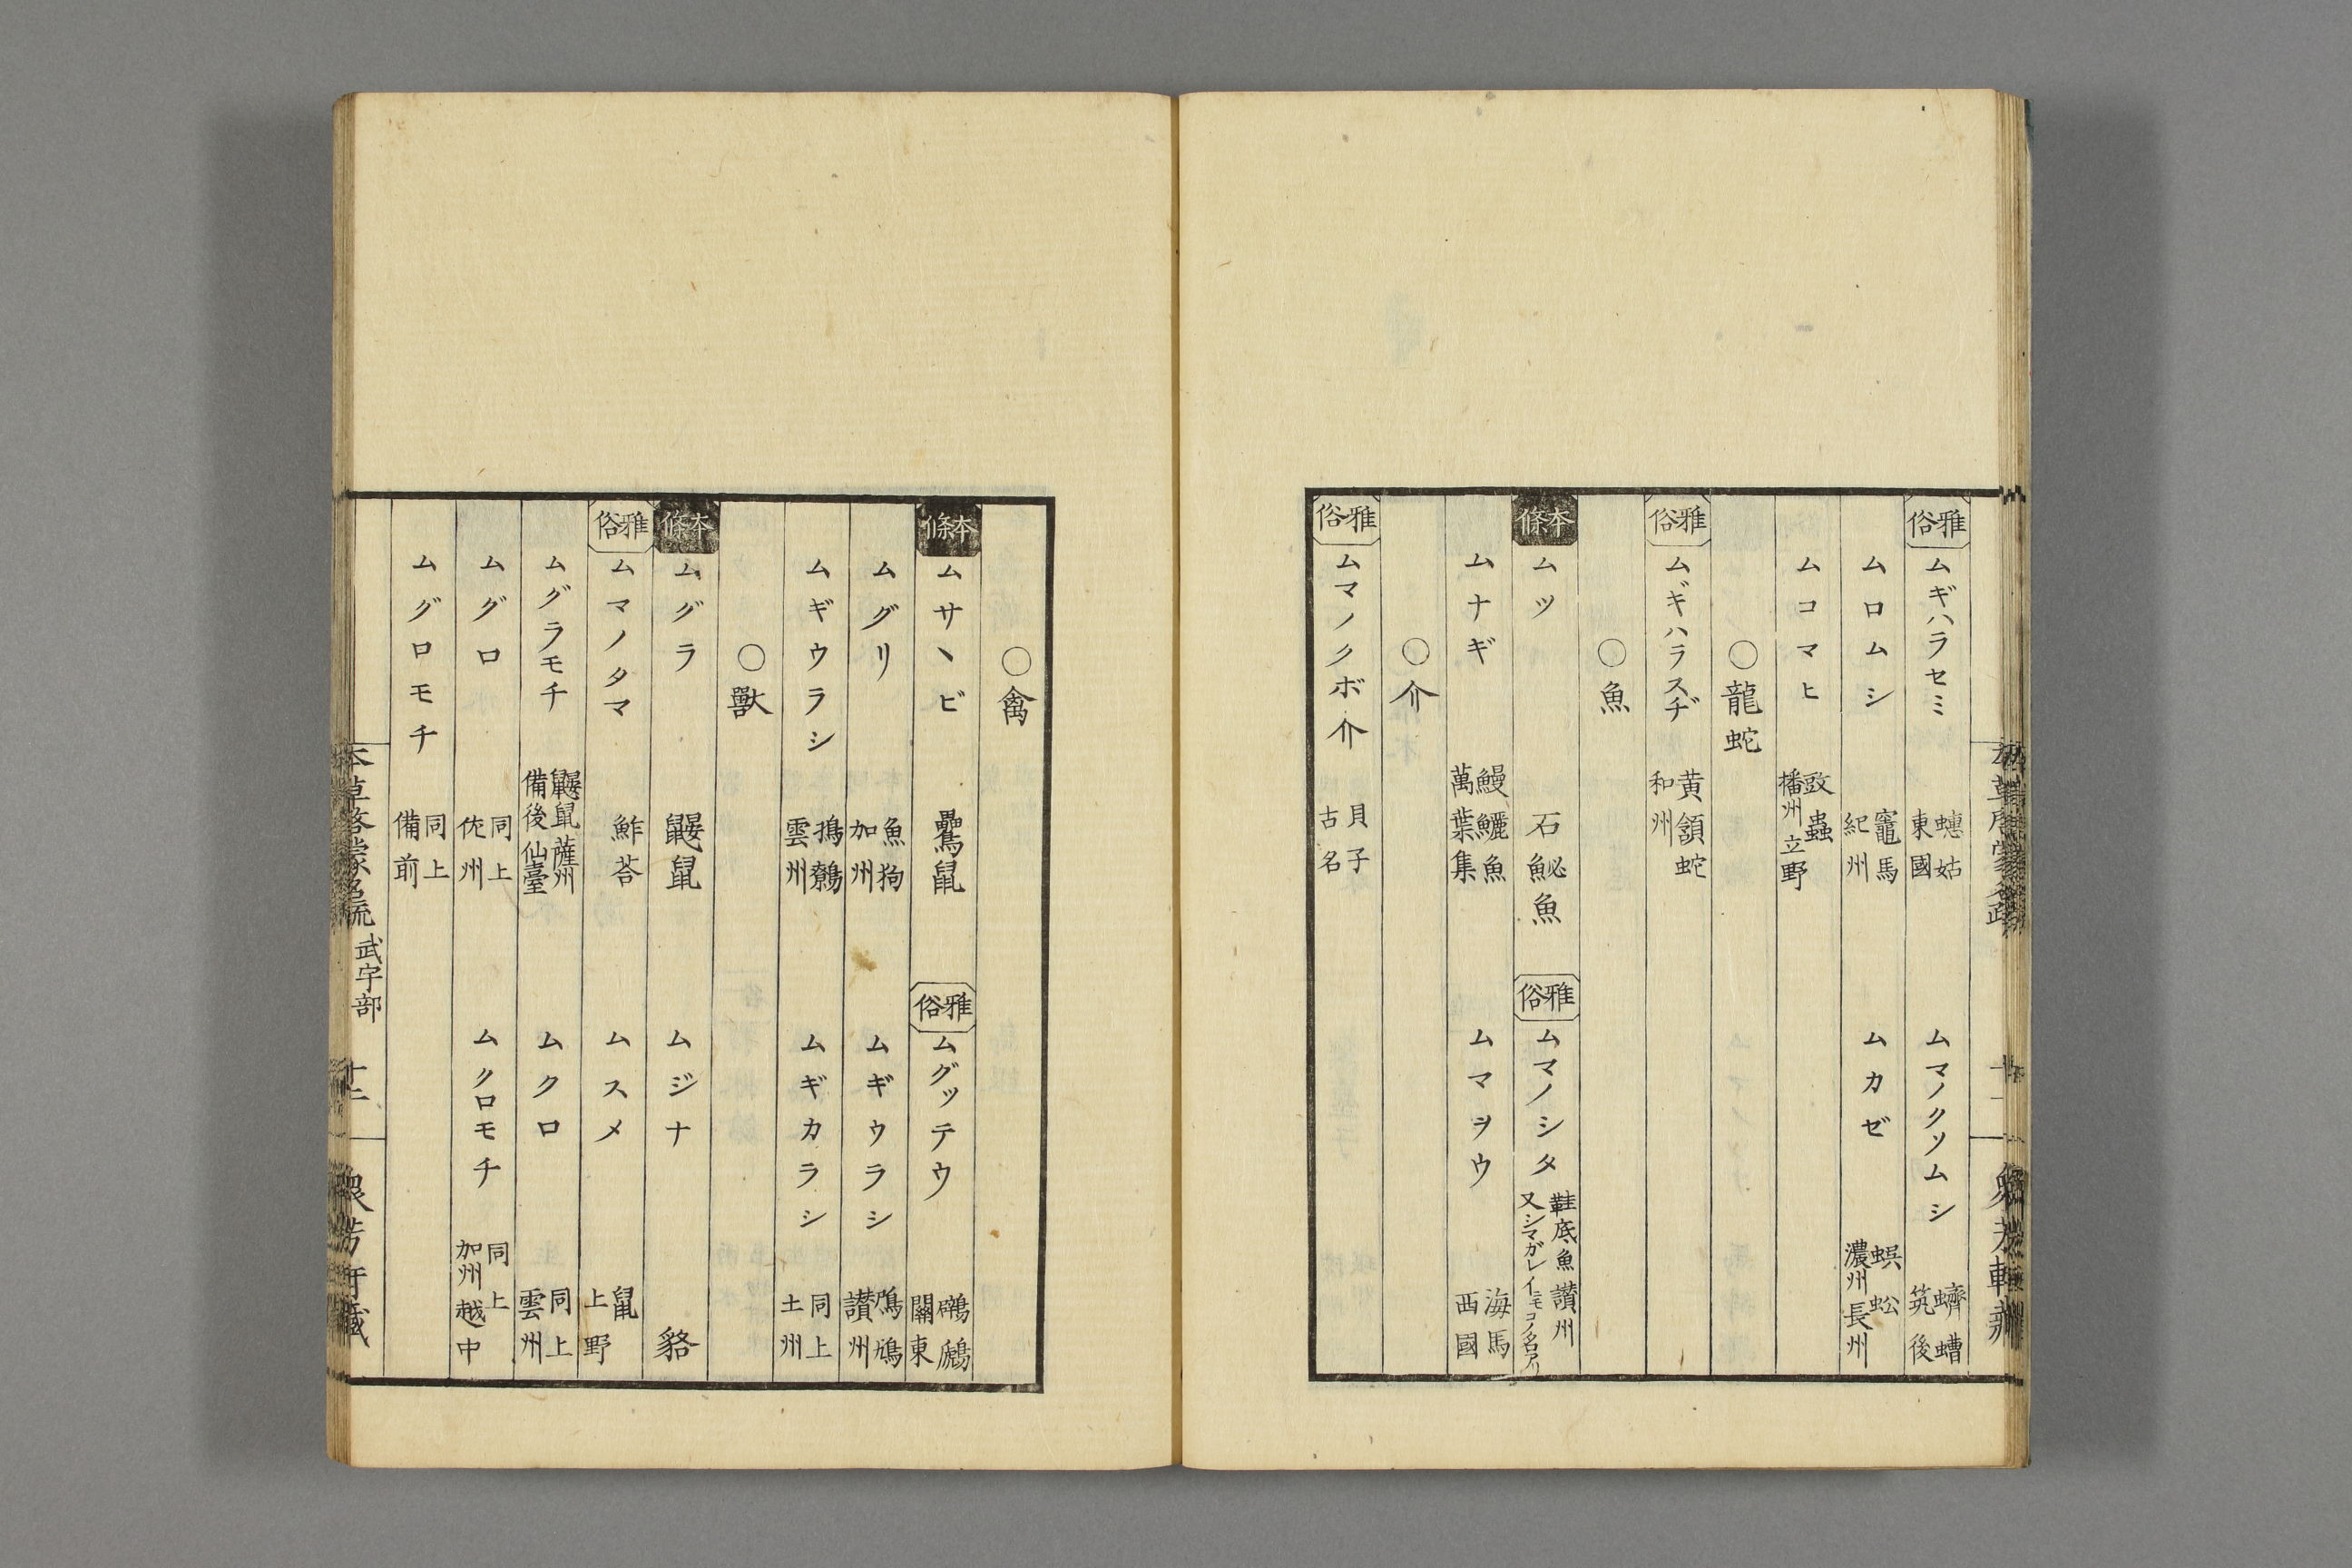 雅俗 ムギハラセミ 蟪蛄 東國 ムマノクソムシ 蠐螬 筑後
ムロムシ 竈馬 紀州 ムカゼ 蜈蚣 濃州 長州
ムコマヒ 豉蟲 播州 立野
○龍蛇
雅俗 ムギハラスヂ 黄頷蛇 和州
○魚
本條 ムツ 石鮅魚 雅俗 ムマノシタ 鞋底魚 讃州 又シマガレイニモコノ名アリ
ムナギ 鰻鱺魚 萬葉集 ムマヲウ 海馬 西國
○介
雅俗 ムマノクボ介 貝子 古名
○禽
本條 ムサヽビ 鸓鼠 雅俗 ムグッテウ 鸊鷉 關東
ムグリ 魚狗 加州 ムギウラシ 鳲鳩 讃州
ムギウラシ 鳲鷯 雲州 ムギカラシ 同上 土州
○獸
本條 ムグラ 鼹鼠 ムジナ 貉
雅俗 ムマノタマ 鮓荅 ムスメ 鼠 上野
ムグラモチ 鼹鼠 薩州 備後 仙臺 ムクロ 同上 雲州
ムグロ 同上 佐州 ムクロモチ 同上 加州 越中
ムグロモチ 同上 備前
本草啓蒙名疏 武宇部 十二